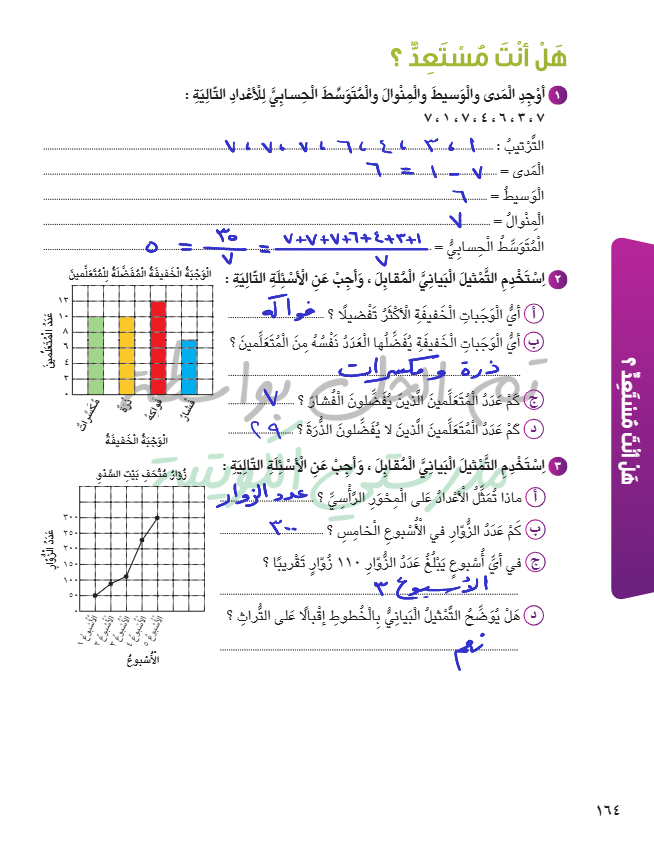 هَلْ أَنْتَ مُسْتَعِدٌّ ؟
١ أَوْجِدِ الْمَدى والْوَسيطَ والْمِنْوالَ والْمُتَوَسِّطَ الْحِسابِيَّ لِلْأَعْدادِ التّالِيَةِ :
٧ ، ٣ ، ٦ ، ٤ ، ٧ ، ١ ، ٧
التَّرْتيبُ : ١ ، ٣ ، ٤ ، ٦ ، ٧ ، ٧ ، ٧
الْمَدى = ٧ - ١ = ٦
الْوَسيطُ = ٦
الْمِنْوالُ = ٧
الْمُتَوَسِّطُ الْحِسابِيُّ = ١+٣+٤+٦+٧+٧+٧ / ٧ = ٣٥ / ٧ = ٥
٢ اِسْتَخْدِمِ التَّمْثيلَ الْبَيانِيَّ الْمُقابِلَ ، وَأَجِبْ عَنِ الْأَسْئِلَةِ التّالِيَةِ :
أ أَيُّ الْوَجَباتِ الْخَفيفَةِ الْأَكْثَرُ تَفْضيلًا ؟ فواكه
ب أَيُّ الْوَجَباتِ الْخَفيفَةِ يُفَضِّلُها الْعَدَدُ نَفْسُهُ مِنَ الْمُتَعَلِّمينَ ؟
ذرة و مكسرات
ج كَمْ عَدَدُ الْمُتَعَلِّمينَ الَّذينَ يُفَضِّلونَ الْفُشارَ ؟ ٧
د كَمْ عَدَدُ الْمُتَعَلِّمينَ الَّذينَ لا يُفَضِّلونَ الذُّرَةَ ؟ ٢٩
الْوَجْبَةُ الْخَفيفَةُ الْمُفَضَّلَةُ لِلْمُتَعَلِّمينَ
عَدَدُ الْمُتَعَلِّمينَ
١٢
١٠
٨
٦
٤
٢
٠
مُكَسَّراتٌ
ذُرَةٌ
فَواكِهُ
فُشارٌ
الْوَجْبَةُ الْخَفيفَةُ
تم الحل بواسطة
مدرستي الكويتية
٣ اِسْتَخْدِمِ التَّمْثيلَ الْبَيانِيَّ الْمُقابِلَ ، وَأَجِبْ عَنِ الْأَسْئِلَةِ التّالِيَةِ :
أ ماذا تُمَثِّلُ الْأَعْدادُ عَلى الْمِحْوَرِ الرَّأْسِيِّ ؟ عدد الزوار
ب كَمْ عَدَدُ الزُّوّارِ في الْأُسْبوعِ الْخامِسِ ؟ ٣٠٠
ج في أَيِّ أُسْبوعٍ يَبْلُغُ عَدَدُ الزُّوّارِ ١١٠ زُوّارٍ تَقْريبًا ؟
الأسبوع ٣
د هَلْ يُوَضِّحُ التَّمْثيلُ الْبَيانِيُّ بِالْخُطوطِ إِقْبالًا عَلى التُّراثِ ؟
نعم
زُوّارُ مُتْحَفِ بَيْتِ السَّدْوِ
عَدَدُ الزُّوّارِ
٣٠٠
٢٥٠
٢٠٠
١٥٠
١٠٠
٥٠
٠
الْأُسْبوعُ ١
الْأُسْبوعُ ٢
الْأُسْبوعُ ٣
الْأُسْبوعُ ٤
الْأُسْبوعُ ٥
الْأُسْبوعُ
هَلْ أَنْتَ مُسْتَعِدٌّ ؟
١٦٤